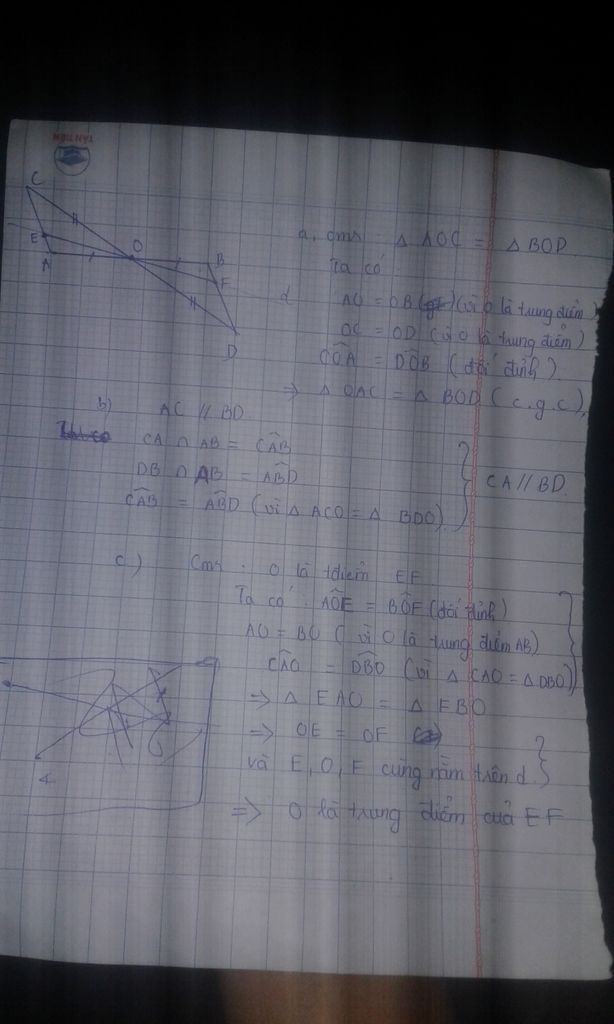 C
E
A
O
B
F
D
a, cms : Δ AOC = Δ BOD.
Ta có :
d
AO = OB (vì O là trung điểm)
OC = OD (vì O là trung điểm)
CÔA = DÔB (đối đỉnh).
=> Δ OAC = Δ BOD (c.g.c),
b) AC // BD
CA ∩ AB = CÂB
DB ∩ AB = AB̂D
CÂB = AB̂D (vì Δ ACO = Δ BDO)
CA // BD.
c.) Cmr : O là tđiểm EF
Ta có : AÔE = BÔF (đối đỉnh)
AO = BO ( vì O là trung điểm AB)
CÂO = DB̂O (vì Δ CAO = Δ DBO)
=> Δ EAO = Δ FBO
=> OE = OF
và E, O, F cùng nằm trên d.
=> O là trung điểm của EF